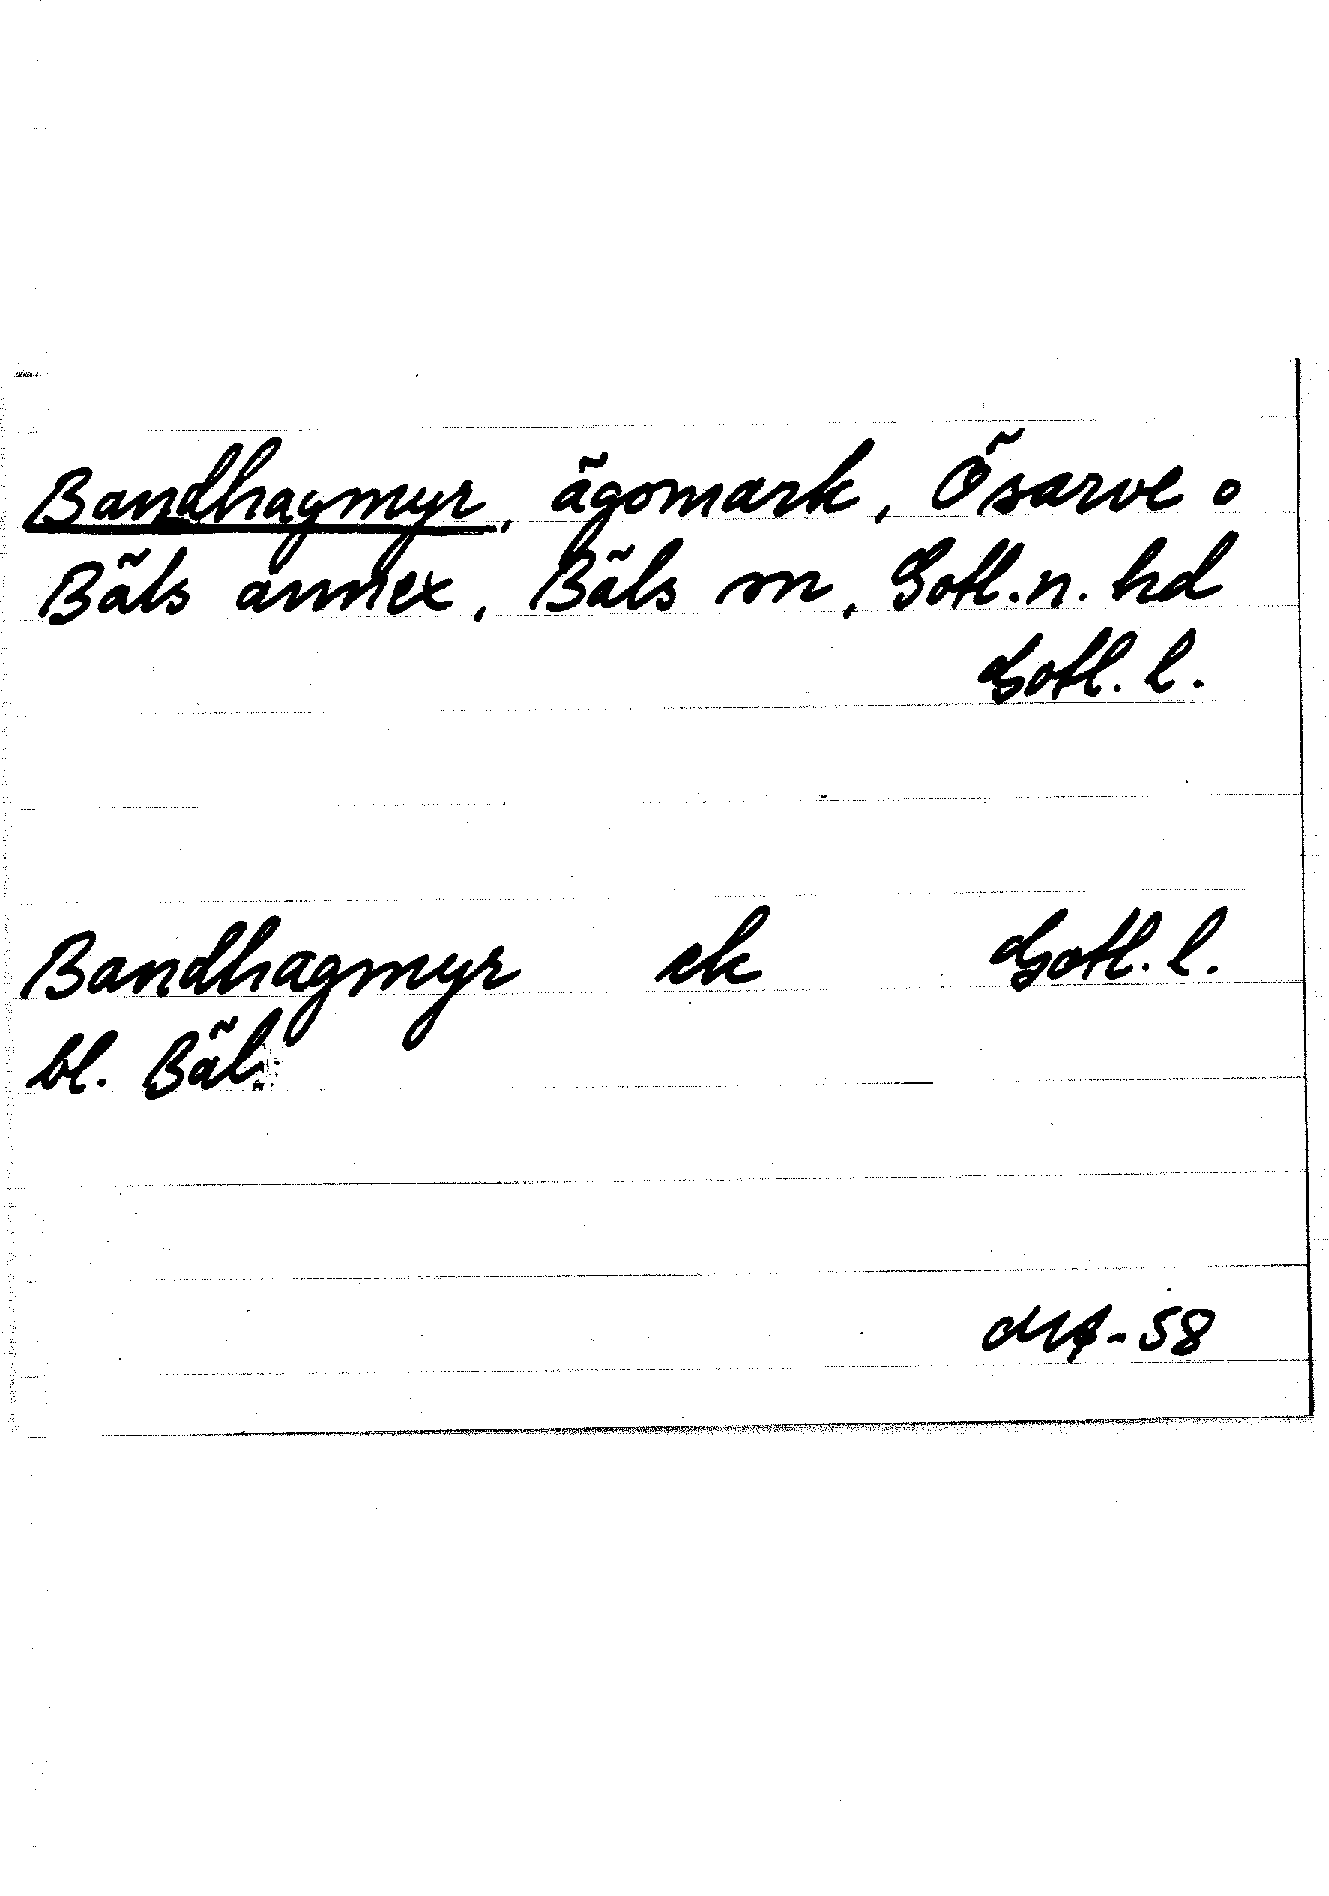 Bandhagmyr, ägomark, Ösarve o
Bäls annex, Bäls sn, Gotl.n. hd
Gotl. l.
Bandhagmyr ek Gotl. l.
bl. Bäl
-58